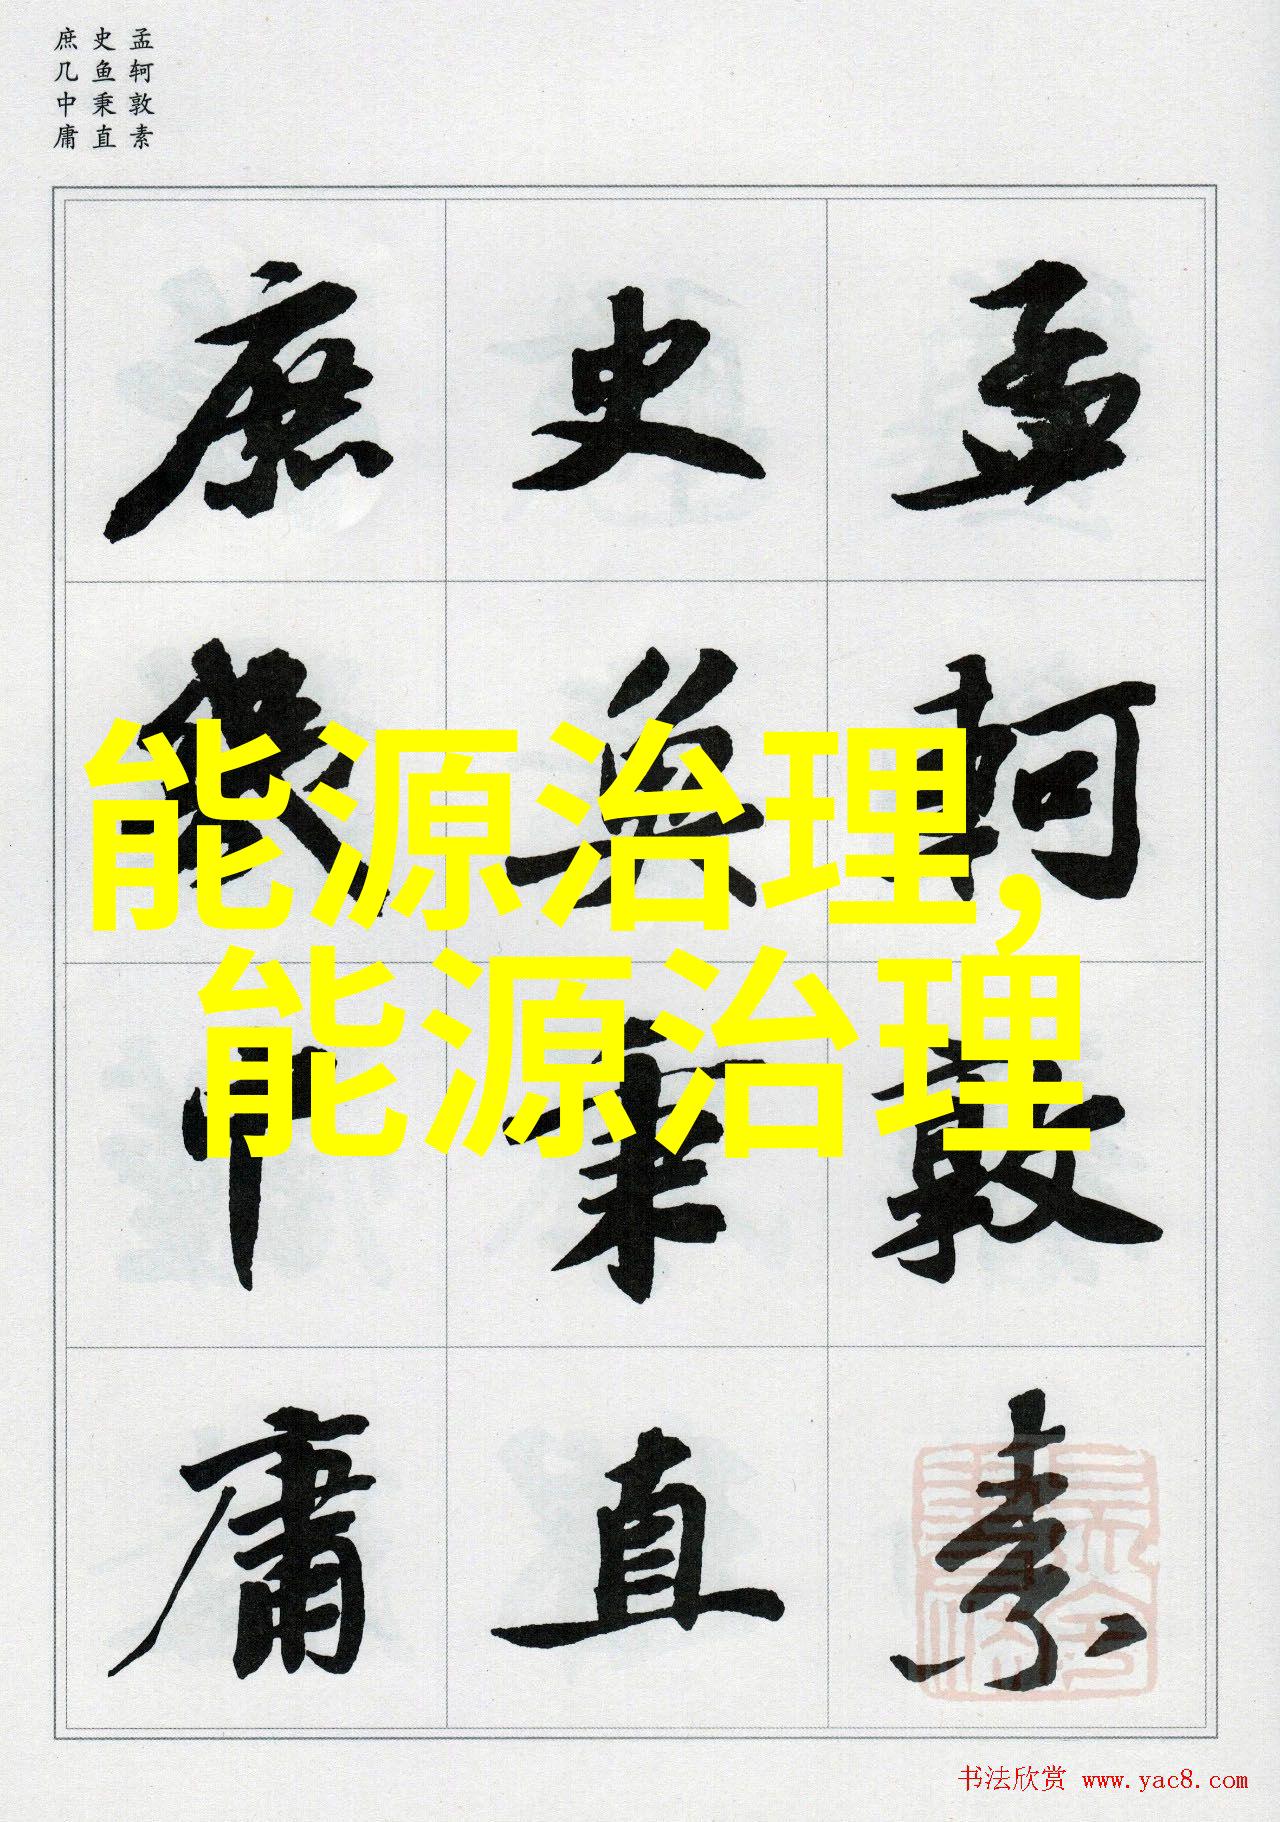 孟轲敦素
史鱼秉直
庶几中庸
孟軻敦素
史魚秉直
庶幾中庸
能源治理,
能源治理
书法欣赏 www.yac8.com